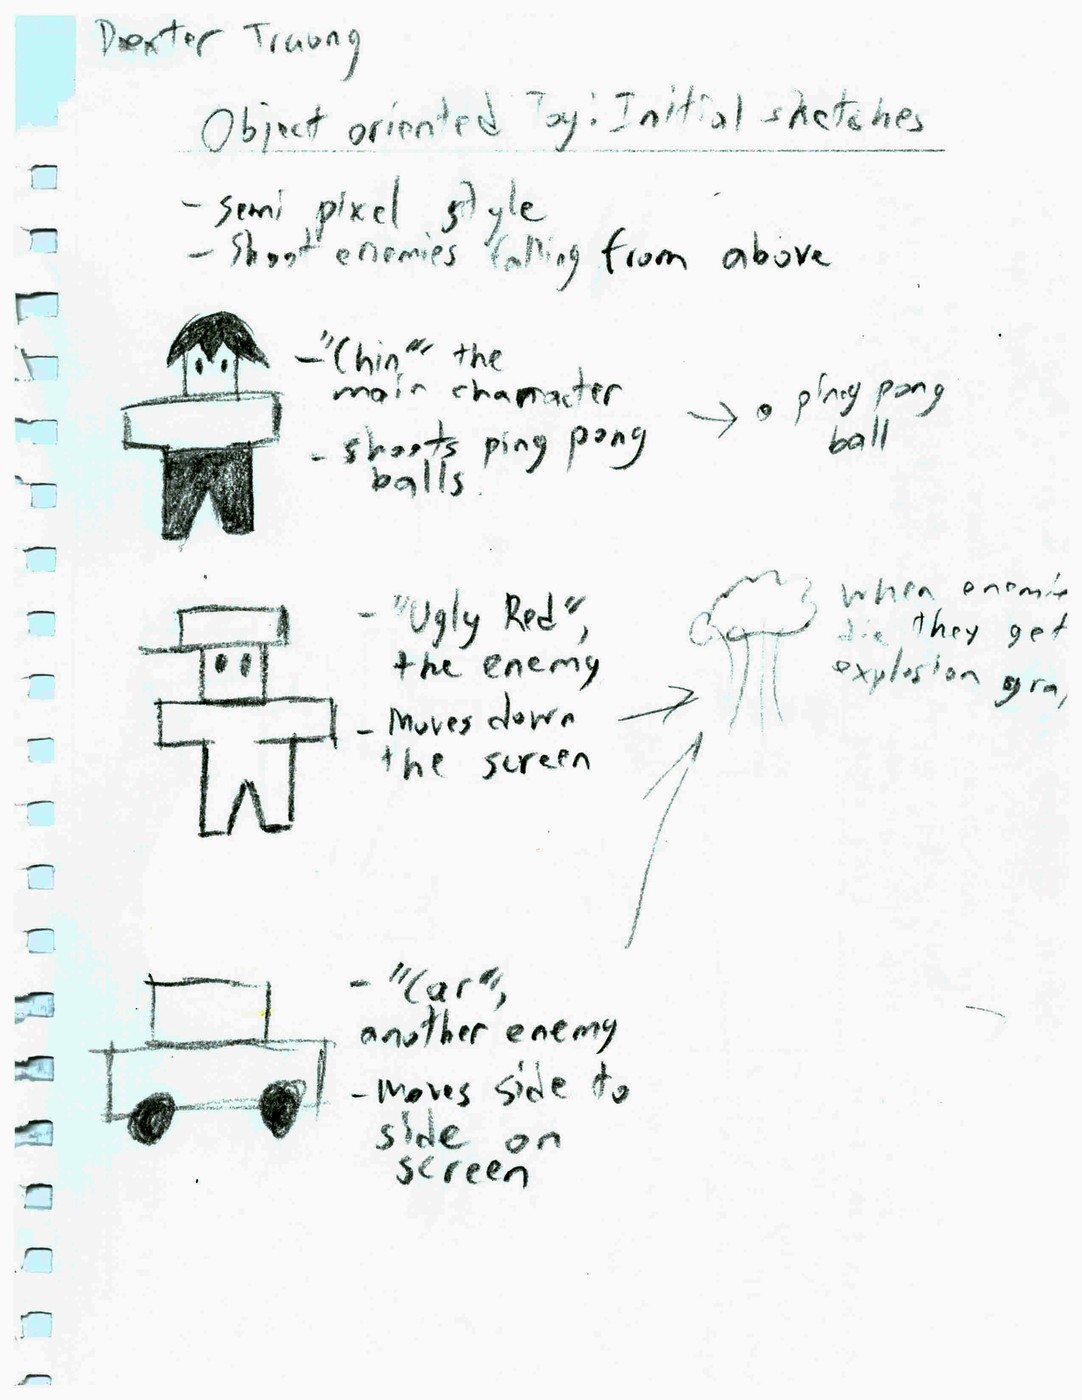 Dexter Truong
Object oriented Toy: Initial sketches
- semi pixel style
- Shoot enemies falling from above
- "Chin" the
main character
- shoots ping pong
balls.
ping pong
ball
- "Ugly Red",
the enemy
- Moves down
the screen
when enemie
die they get
explosion gra,
- "Car",
another enemy
- Moves side to
side on
screen